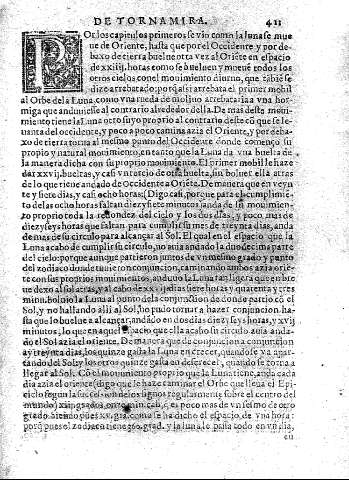 DE TORNAMIRA. 421
POr los capitulos primeros se vio como la luna se mue
ue de Oriente, hasta que por el Occidente y por de-
baxo de tierra buelue otra vez al Oriẽte en espacio
de xxiiij. horas como se bueluen y mueuẽ todos los
otros cielos con el mouimiento diurno, que tãbiẽ se
dize arrebatado: porque assi arrebata el primer mobil
al Orbe de la Luna, como vna rueda de molino arrebataria a vna hor-
miga que anduuiesse al contrario alrededor della. De mas deste moui-
miento tiene la Luna otro suyo proprio al contrario deste cõ que se le-
uanta del occidente, y poco a poco camina azia el Oriente, y por deba-
xo de tierra torna al mesmo punto del Occidente donde començo su
proprio y natural mouimiento, en tanto que la Luna da vna buelta de
la manera dicha con su proprio mouimiento. El primer mobil le haze
dar xxvij. bueltas, y casi vn tercio de otra buelta,
de lo que tiene andado de Occidente a Oriẽte. De manera que en veyn
te y siete dias, y casi ocho horas (Digo casi, porque para el cumplimiẽ-
to del
to proprio toda la redondez del cielo y los dos dias, y poco mas de
diez y seys horas que faltan para cumplir su mes de treynta dias, anda
de mas de su circulo para alcançar al Sol. El qual en el espacio que la
Luna acabo de cumplir su circulo, no auia andado la duodecima parte
del cielo: porque aunque partieron juntos de vn mesmo grado y punto
del zodiaco donde tuuieron conjunction, caminando ambos azia orien-
te con sus proprios mouimientos, anduuo la Luna tan ligera que en bre
ue dexo al sol atras, y al cabo de xxvij. dias siete horas y quarenta y tres
minu. boluio la Luna al punto de la conjunction de donde partio cõ el
Sol, y no hallando alli al Sol, no pudo tornar a hazer conjunction, has-
ta que lo buelue a alcançar, andando en dos dias diez y seys horas, y xvij
minutos, lo que en aquel espacio que ella acabo su circulo auia anda-
do el Sol azia el oriente. De manera que de conjunction a conjunction
ay treynta dias, los quinze gasta la luna en crecer, quando se va apar-
tando del Sol: y los otros quinze gasta en descrecer, quando se torna a
llegar al Sol. Cõ el mouimiento proprio que la Luna tiene, anda cada
dia azia el oriente (digo que le haze caminar el Orbe que lleua el Epi-
ciclo segun la succession de los signos regularmente sobre el centro del
mundo) xiij. grados, es poco mas de vn sesmo de otro
grado, siendo pues xv. gra. como se ha dicho el espacio, de vna hora:
porq̃ pues el zodiaco tiene 360. grad. y la luna le passa todo en
cu